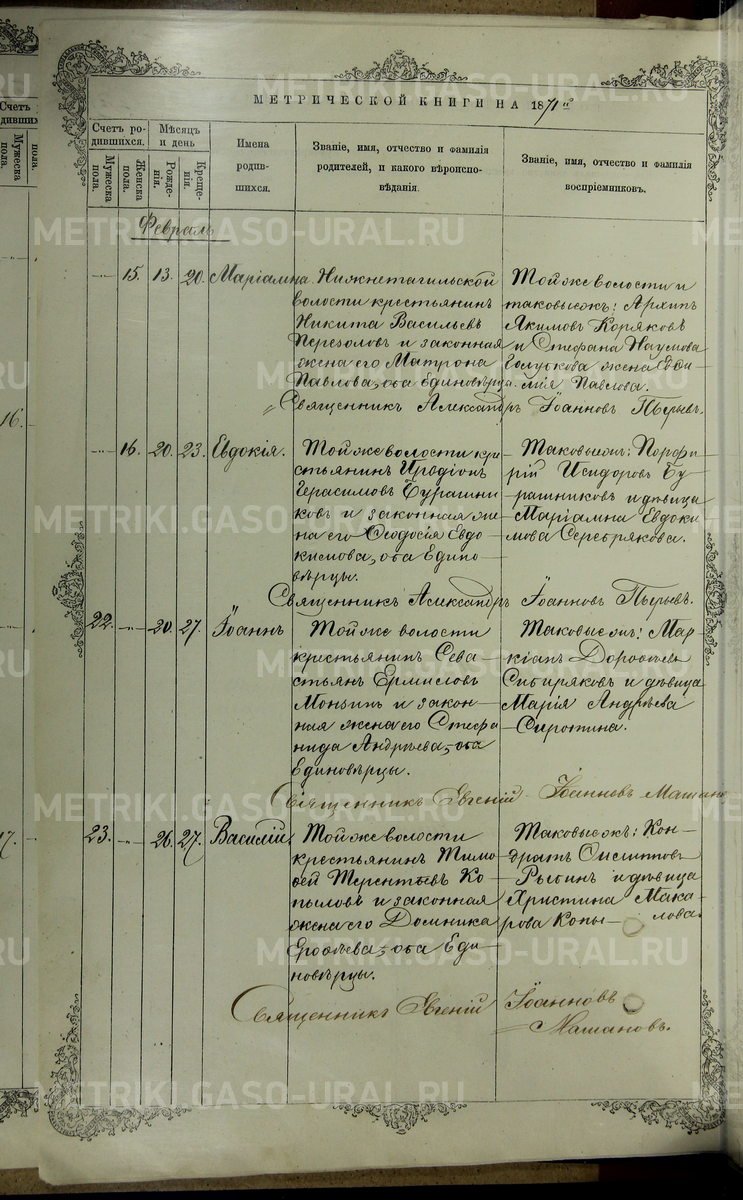 МЕТРИЧЕСКОЙ КНИГИ НА 1871й
Счетъ ро-
дившихся.
Мужеска пола.
Женска пола.
Мѣсяцъ
и день
Рожде-
нія.
Креще-
нія.
Имена
родив-
шихся.
Званіе, имя, отчество и фамилія
родителей, и какого вѣроиспо-
вѣданія.
Званіе, имя, отчество и фамилія
воспріемниковъ.
Февраль
15. 13. 20. Маріамна
Нижнетагильской
волости крестьянинъ
Никита Васильевъ
Перезоловъ и законная
жена его Матрона
Павлова, оба Единовѣрцы.
Той же волости и
таковые жъ: Архипъ
Якимовъ Коряковъ
и Стефана Наумова
Голубкова жена Евѳи-
мія Павлова.
Священникъ Александръ Іоанновъ Пырьевъ.
16. 20. 23. Евдокія.
Той же волости кре-
стьянинъ Иродіонъ
Герасимовъ Бурашни-
ковъ и законная же-
на его Ѳеодосія Евдо-
кимова, оба Едино-
вѣрцы.
Таковые жъ: Порфи-
рій Исидоровъ Бу-
рашниковъ и дѣвица
Маріамна Евдоки-
мова Серебрякова.
Священникъ Александръ Іоанновъ Пырьевъ.
22. 20. 27. Іоаннъ
Той же волости
крестьянинъ Сева-
стьянъ Ермиловъ
Монзинъ и закон-
ная жена его Стефа-
нида Андрѣева, оба
Единовѣрцы.
Таковые жъ: Мар-
кіанъ Дороѳѣевъ
Сибиряковъ и дѣвица
Марія Андрѣева
Сиротина.
Священникъ Евгеній Іоанновъ
23. 26. 27. Василій.
Той же волости
крестьянинъ Тимо-
ѳей Терентьевъ Ко-
пыловъ и законная
жена его Домника
Ероѳѣева, оба Еди-
новѣрцы.
Таковые жъ: Кон-
дратъ
Рыбинъ и дѣвица
Христина Мака-
рова Копы-
лова.
Священникъ Евгеній Іоанновъ
METRIKI.GASO-URAL.RU
METRIKI.GASO-URAL.RU
METRIKI.GASO-URAL.RU
METRIKI.GASO-URAL.RU
METRIKI.GASO-URAL.RU
METRIKI.GASO-URAL.RU
METRIKI.GASO-URAL.RU
METRIKI.GASO-URAL.RU